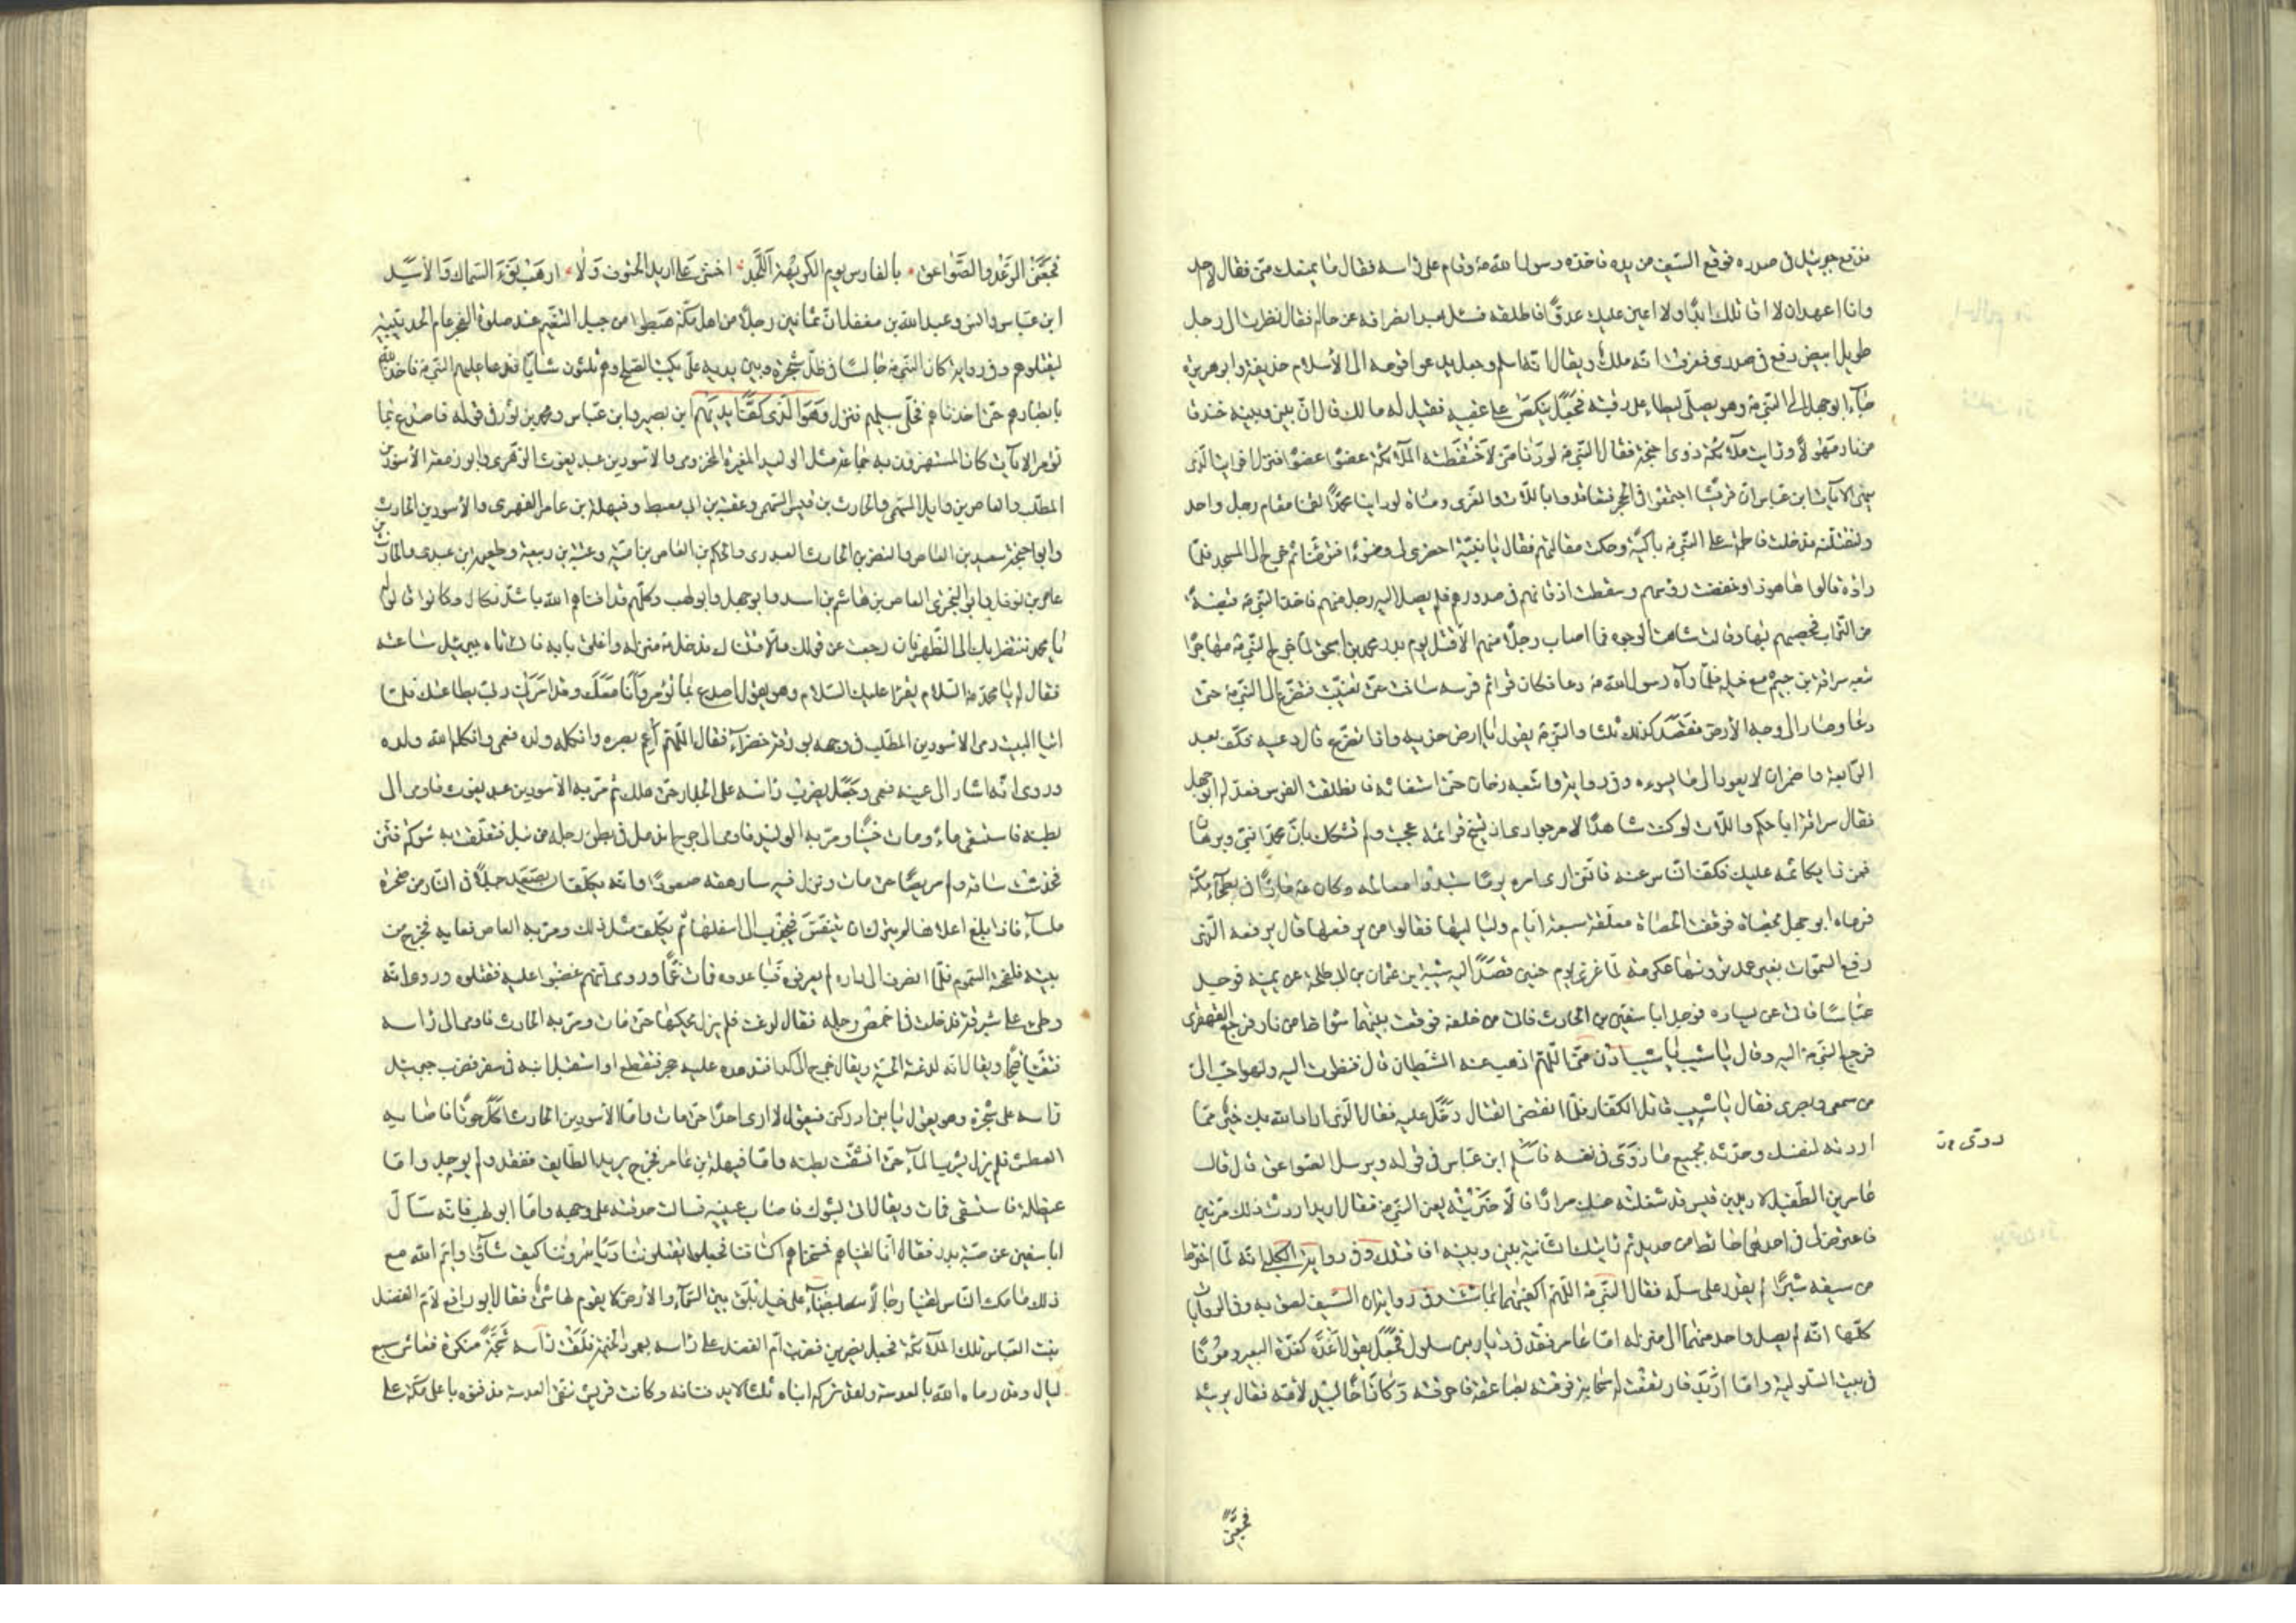 فدفع جبرئيل في صدره فوقع السيف من يده فاخذه رسول الله ص وقام على راسه فقال ما يمنعك منى فقال لا احد
وانا اعهد ان لا اقاتلك ابدًا ولا اعين عليك عدوًّا فاطلقه فسئل بعد انصرافه عن حاله فقال نظرت الى رجل
طويل ابيض دفع في صدرى فعرفت انه ملك ويقال انه اسلم وجعل يدعو قومه الى الأسلام حذيفة وابو هريرة
جاء ابو جهل الى النبي ص وهو يصلّى ليطاء على رقبته فجعل ينكص على عقبيه فقيل له مالك قال انّ بينى وبينه خندقا
من نار مهولًا ورايت ملائكة ذوى اجنحة فقال النبي ص لو دنا منّى لاختطفته الملائكة عضوًا عضوًا فنزل افرايت الّذى
ينهى الآيات ابن عباس انّ قريشًا اجتمعوا في الحجر فتعاقدوا باللّات والعزّى ومناة لو راينا محمّدًا لقمنا مقام رجل واحد
ولنقتلنّه فدخلت فاطمة على النبي ص باكية وحكت مقالتهم فقال يا بنيّة احضرى لى وضوءًا فتوضّا ثم خرج الى المسجد فلمّا
راوه قالوا ها هو ذا وخفضت رؤسهم وسقطت اذقانهم في صدورهم فلم يصل اليه رجل منهم فاخذ النبي ص قبضة
من التّراب فحصبهم بها وقال شاهت الوجوه فما اصاب رجلًا منهم الّا قتل يوم بدر محمد بن اسحق لمّا خرج النبي ص مهاجرًا
تبعه سراقة بن جعشم مع خيله فلمّا رآه رسول الله ص دعا فكان قوائم فرسه ساخت حتى تغيّبت فتضرّع الى النبي ص حتى
دعا وصار الى وجه الأرض فقصد كذلك ثلثا والنبي ص يقول يا ارض خذيه واذا تضرّع قال دعيه فكفّ بعد
الرّابعة واضمر ان لا يعود الى ما يسوءه وفي رواية واتبعه دخان حتى استغاثه فانطلقت الفرس فعذله ابو جهل
فقال سراقة ابا حكم واللّات لو كنت شاهدًا لامر جوادى اذ تسيخ قوائمه عجبت ولم تشكك بانّ محمّدًا نبىّ وبرهان
فمن ذا يكاتمه عليك فكفّ النّاس عنه فانّنى ارى امره يومًا ستبدوا معالمه وكان ص مارًّا في بطحاء مكّة
فرماه ابو جهل بحصاة فوقفت الحصاة معلّقة سبعة ايّام ولياليها فقالوا من يرفعها قال يرفعه الّذى
رفع السّموات بغير عمد ترونها عكرمة لمّا غزى يوم حنين قصد اليه شيبة بن عثمان بن ابى طلحة عن يمينه فوجد
عبّاسًا فاتى عن يساره فوجد ابا سفين بن الحارث فاتى من خلفه فوقعت بينهما شواظ من نار فرجع القهقرى
فرجع النبي ص اليه وقال يا شيب يا شيب ادن منّى اللّهم اذهب عنه الشيطان قال فنظرت اليه ولهو احبّ الىّ
من سمعى وبصرى فقال يا شيب قاتل الكفّار فلمّا انقضى القتال دخل عليه فقال الّذى اراد الله بك خير ممّا
اردته لنفسك وحدّثه بجميع ما روّى في نفسه فاسلم ابن عبّاس في قوله ويرسل الصّواعق قال قال
عامر بن الطّفيل لاربد بن قيس قد شغلته عنك مرارًا فالّا ضربته يعنى النبي ص فقال اربد اردت ذلك مرّتين
فاعترض لى في احدهما حائط من حديد ثم رايتك الثانية بينى وبينه افاقتلك وفي رواية الكلبى انّه لمّا اخترط
من سيفه شبرًا لم يقدر على سلّه فقال النبي ص اللّهم اكفنيهما بما شئت وفي رواية ان السّيف لصق به وفي الرّوايات
كلّها انّه لم يصل واحد منهما الى منزله امّا عامر فغدّ في ديار بنى سلول فجعل يقول اغدّة كغدّة البعير وموتًا
في بيت السّلولية وامّا اربد فارتفعت له سحابة فرمته بصاعقة فاحرقته وكان اخا لبيد لامّه فقال يرثيه
روّى ص
فجّعنى
فجّعنى الرّعد والصّواعق بالفارس يوم الكريهة النّجد اخشى على اربد الحتوف ولا ارهب نوء السّماك والأسد
ابن عبّاس وانس وعبد الله بن مغفل انّ ثمانين رجلًا من اهل مكّة هبطوا من جبل التّنعيم عند صلوة الفجر عام الحديبيّة
ليقتلوهم وفي رواية كان النبي ص جالسًا في ظلّ شجرة وبين يديه علىّ يكتب الصّلح وهم ثلثون شابًّا فدعا عليهم النبي ص فاخذ الله
بابصارهم حتى اخذناهم فخلّى سبيلهم فنزل وهو الّذى كفّ ايديهم ابن بصير وابن عبّاس ومحمد بن ثور في قوله فاصدع بما
تؤمر الآيات كان المستهزؤن به جماعة مثل الوليد المغيرة المخزومى والاسود بن عبد يغوث الزّهرى وابو زمعة الأسود بن
المطّلب والعاص بن وايل السّهمى والحارث بن قيس السّهمى وعقبة بن ابى معيط وفيهلة بن عامر الفهرى والأسود بن الحارث
وابو احيحة سعيد بن العاص والنضر بن الحارث العبدرى والحكم بن العاص بن اميّة وعتبة بن ربيعة وطعيمة بن عدى والحارث بن
عامر بن نوفل وابو البخترى العاص بن هاشم بن اسد وابو جهل وابو لهب وكلّهم قد افناهم الله باشدّ نكال وكانوا قالوا له
يا محمد ننتظر بك الى الظّهر فان رجعت عن قولك والّا قتلناك فدخل ص منزله واغلق بابه فاتاه جبرئيل ساعته
فقال له يا محمّد السّلام يقرا عليك السّلام وهو يقول اصدع بما تؤمر وانا معك وقد امرنى ربّى بطاعتك فلمّا
اتيا البيت رمى الاسود بن المطّلب في وجهه بورقة خضراء فقال اللّهم اعم بصره واثكله ولده فعمى واثكله الله ولده
وروى انّه اشار الى عينه فعمى وجعل يضرب راسه على الجدار حتى هلك ثم مرّ به الأسود بن عبد يغوث فاومى الى
بطنه فاستسقى ماء ومات حبنًا ومرّ به الوليد فاومى الى جرح اندمل في بطن رجله من نبل فتعلّقت به شوكة فنن
فخدشت ساقه ولم يزل مريضًا حتى مات ونزل فيه سارهقه صعودًا وانّه يكلّف ان يصعد جبلًا في النّار من صخرة
ملساء فاذا بلغ اعلاها لم يترك ان يتنفّس فيجذب الى اسفلها ثم يكلّف مثل ذلك ومرّ به العاص فعابه فخرج من
بيته فلفحته السّموم فلمّا انصرف الى داره لم يعرفوه فباعدوه فمات غمًّا وروى انّهم غضبوا عليه فقتلوه وروى انّه
وطى على شبرقة فدخلت في اخمص رجله فقال لدغت فلم يزل يحكّها حتى مات ومرّ به الحارث فاومى الى راسه
فتقيّا قيحًا ويقال انّه لدغته الحيّة ويقال خرج الى كدا فتدهده عليه حجر فتقطّع او استقبل ابنه في سفر فضرب جبرئيل
راسه على شجرة وهو يقول يا بنى ادركنى فيقول لا ارى احدًا حتى مات وامّا الأسود بن الحارث اكل حوتًا فاصابه
العطش فلم يزل يشرب الماء حتى انشقّت بطنه وامّا فيهلة بن عامر فخرج يريد الطّايف ففقد ولم يوجد وامّا
عيطلة فاستسقى فمات ويقال اتى بشوك فاصاب عينيه فسالت حدقته على وجهه وامّا ابو لهب فانّه سال
ابا سفين عن قصّة بدر فقال انّا لقيناهم فمنحناهم اكتافنا فجعلوا يقتلوننا وياسروننا كيف شاؤا وايم الله مع
ذلك ما مكث النّاس لقينا رجالًا بيضاء على خيل بلق بين السّماء والأرض لا يقوم لها شىء فقال ابو رافع لامّ الفضل
بنت العبّاس تلك الملائكة فجعل يضربنى فضربت امّ الفضل على راسه بعمود الخيمة فلقت راسه شجّة منكرة فعاش سبع
ليال وقد رماه الله بالعدسة ولقد تركه ابناه ثلثا لا يدفنانه وكانت قريش تتّقى العدسة فدفنوه باعلى مكّة على